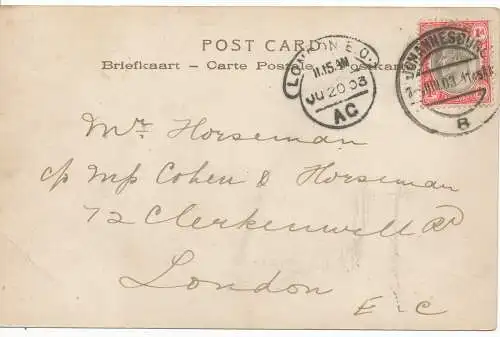 POST CARD.
Briefkaart – Carte Postale – Postkarte
LONDON E.C.
11.15 AM
JU 20 03
AC
JOHANNESBURG
JUN 03
8
1d 1d
Mr Horseman
c/o Mss Cohen & Horseman
72 Clerkenwell Rd
London
E-C